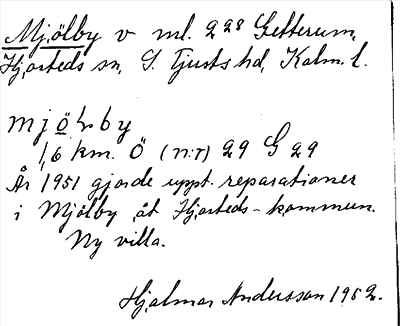 Mjölby v ml. 2 28 Getterum,
Hjorteds sn, S. Tjusts hd, Kalm. l.
mjö̲lby
1,6 km. Ö (n:r) 29 G 29
År 1951 gjorde uppt. reparationer
i Mjölby åt Hjorteds-kommun.
Ny villa.
Hjalmar Andersson 1952.